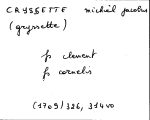 CRYSSETTE michiel jacobus
(gryssette)
fs clement
fs cornelis
(1709) 326, 314vo